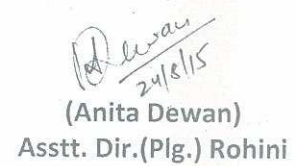 ADewan
24/8/15
(Anita Dewan)
Asstt. Dir.(Plg.) Rohini